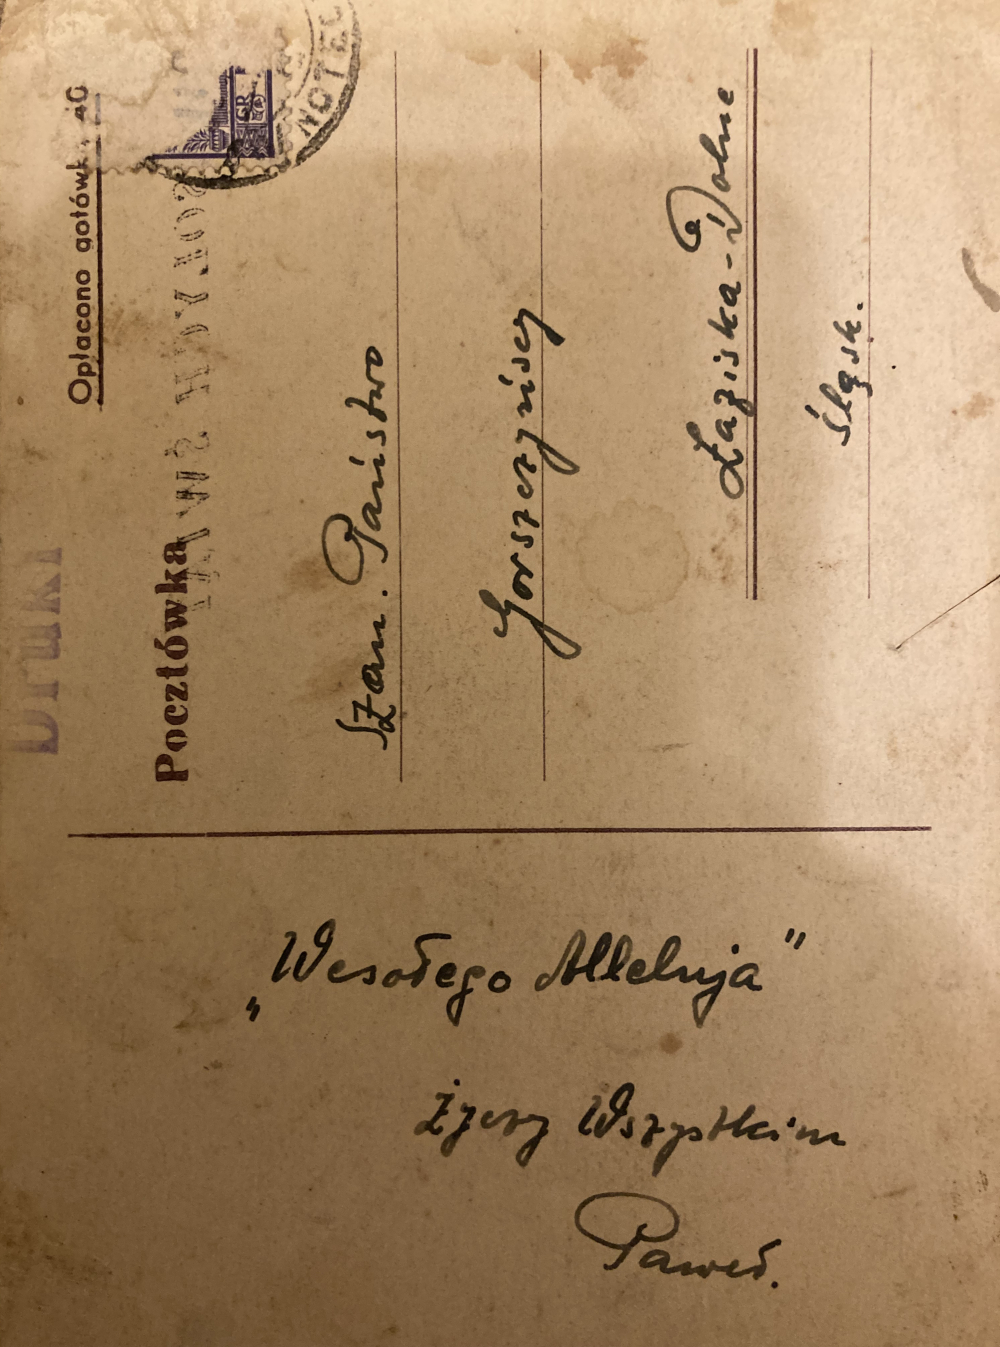 Druki
Opłacono gotówk
Pocztówka
GR
Szan. Państwo
Gorszczyńscy
Łaziska-Dolne
Śląsk.
„Wesołego Alleluja”
życzy Wszystkim
Paweł.